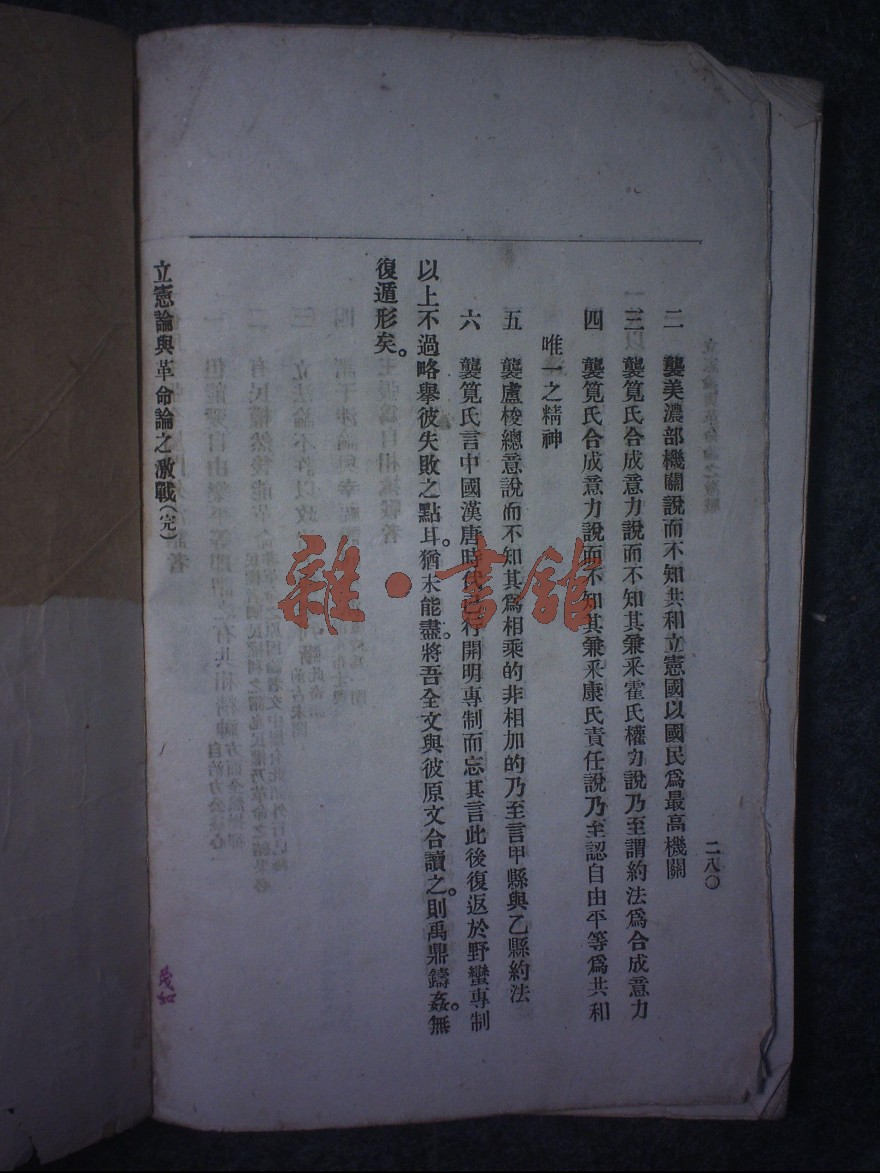 二八〇
二　襲美濃部機關說而不知共和立憲國以國民爲最高機關
三　襲筧氏合成意力說而不知其兼釆霍氏權力說乃至謂約法爲合成意力
四　襲筧氏合成意力說而不知其兼釆康氏責任說乃至認自由平等爲共和
唯一之精神
五　襲盧梭總意說而不知其爲相乘的非相加的乃至言甲縣與乙縣約法
六　襲筧氏言中國漢唐時代已行開明專制而忘其言此後復返於野蠻專制
以上不過略舉彼失敗之點耳。猶未能盡。將吾全文與彼原文合讀之。則禹鼎鑄姦。無
復遁形矣。
立憲論與革命論之激戰(完)
雜·書館